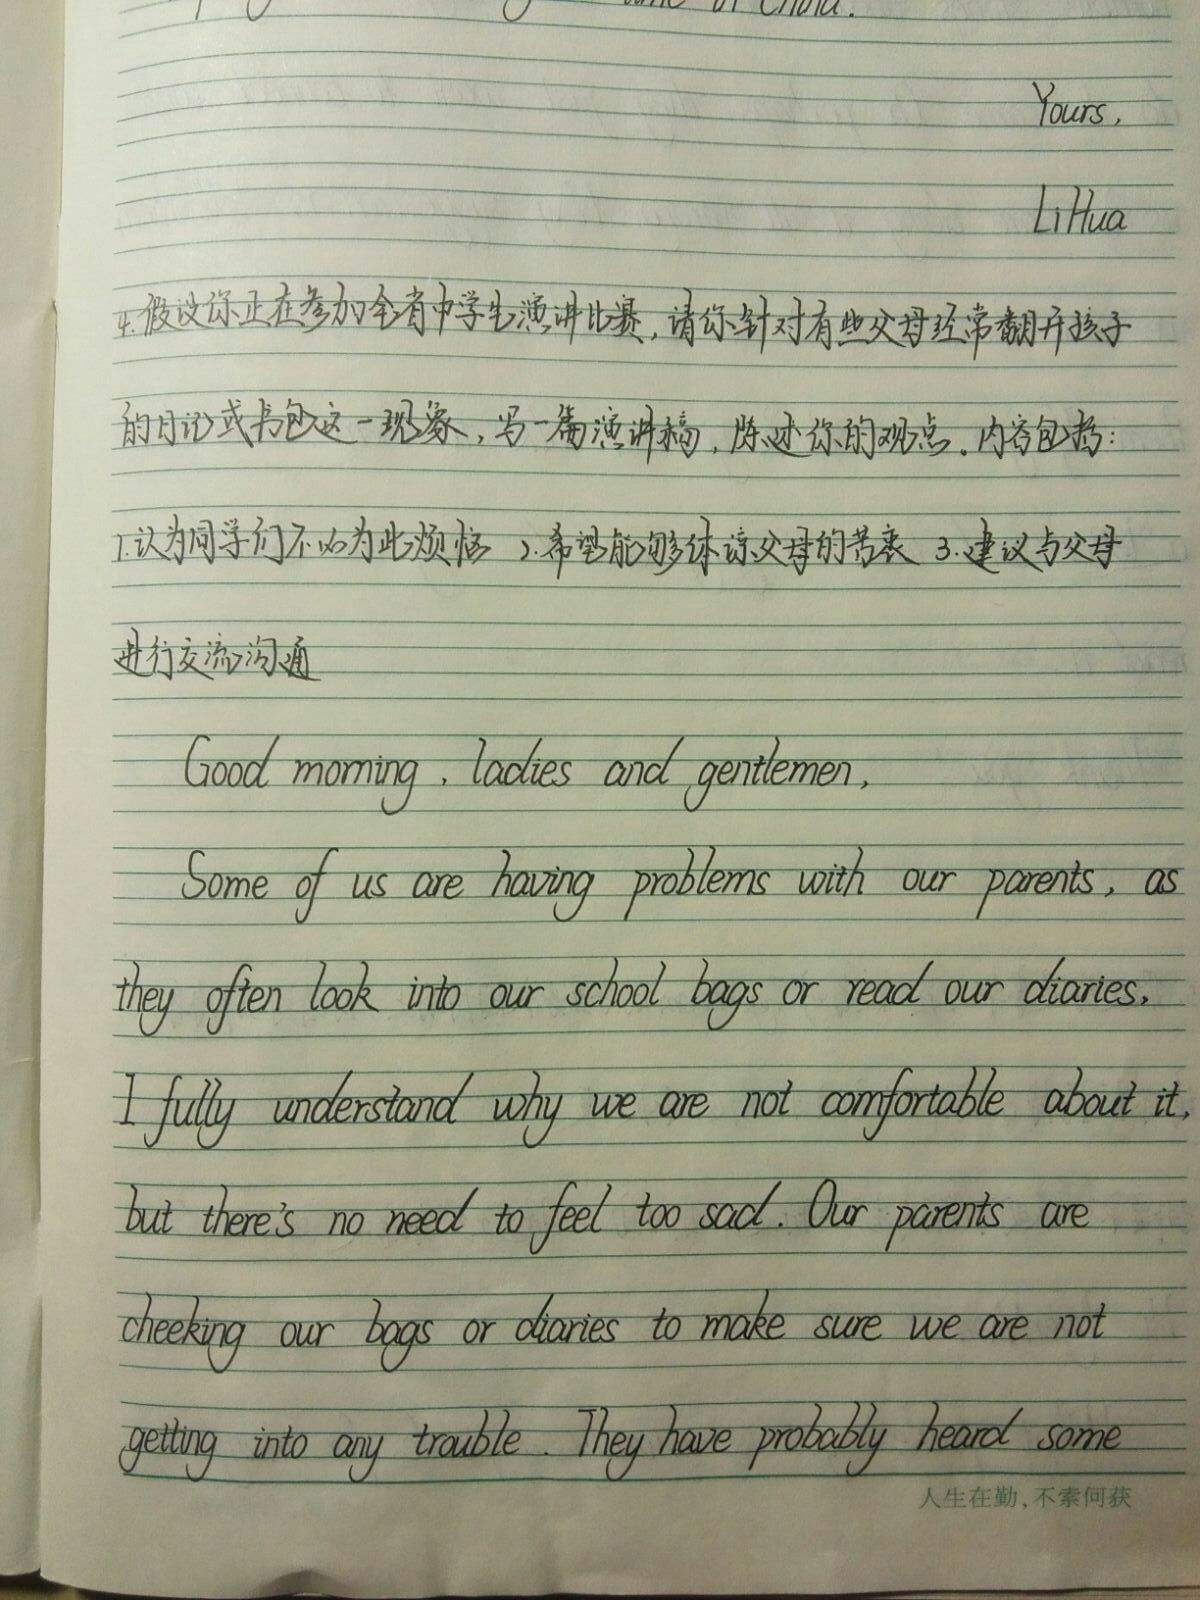 in China.
Yours,
Li Hua
4.假设你正在参加全省中学生演讲比赛,请你针对有些父母经常翻开孩子
的日记或书包这一现象,写一篇演讲稿,陈述你的观点。内容包括:
1.认为同学们不必为此烦恼 2.希望能够体谅父母的苦衷 3.建议与父母
进行交流沟通
Good morning, ladies and gentlemen,
Some of us are having problems with our parents, as
they often look into our school bags or read our diaries.
I fully understand why we are not comfortable about it,
but there's no need to feel too sad. Our parents are
cheeking our bags or diaries to make sure we are not
getting into any trouble. They have probably heard some
人生在勤,不索何获